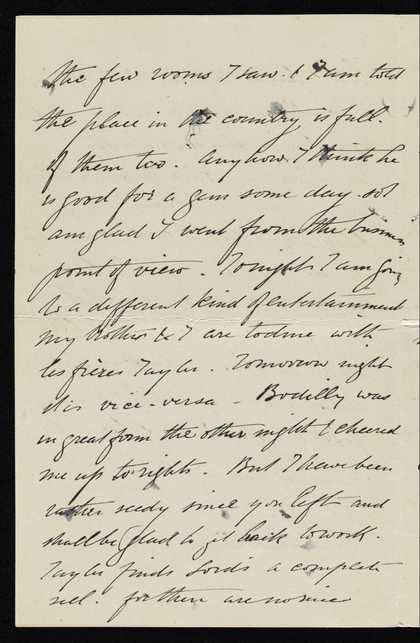 the few rooms I saw. & I am told
the place in the country is full.
of them too. Anyhow I think he
is good for a gem some day. so I
am glad I went from the business
point of view. Tonight I am going
to a different kind of entertainment
my brother & I are to dine with
les frères Taylor. Tomorrow night
it is vice-versa - Bodilly was
in great form the other night & cheered
me up to rights. But I have been
rather seedy since you left and
shall be glad to get back to work.
Taylor finds Lords a complete
sell. for there are no nice